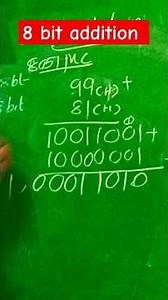 8 bit addition
8051 μC
8 bit
99(H) +
81(H)
10011001 +
10000001
1,00011010